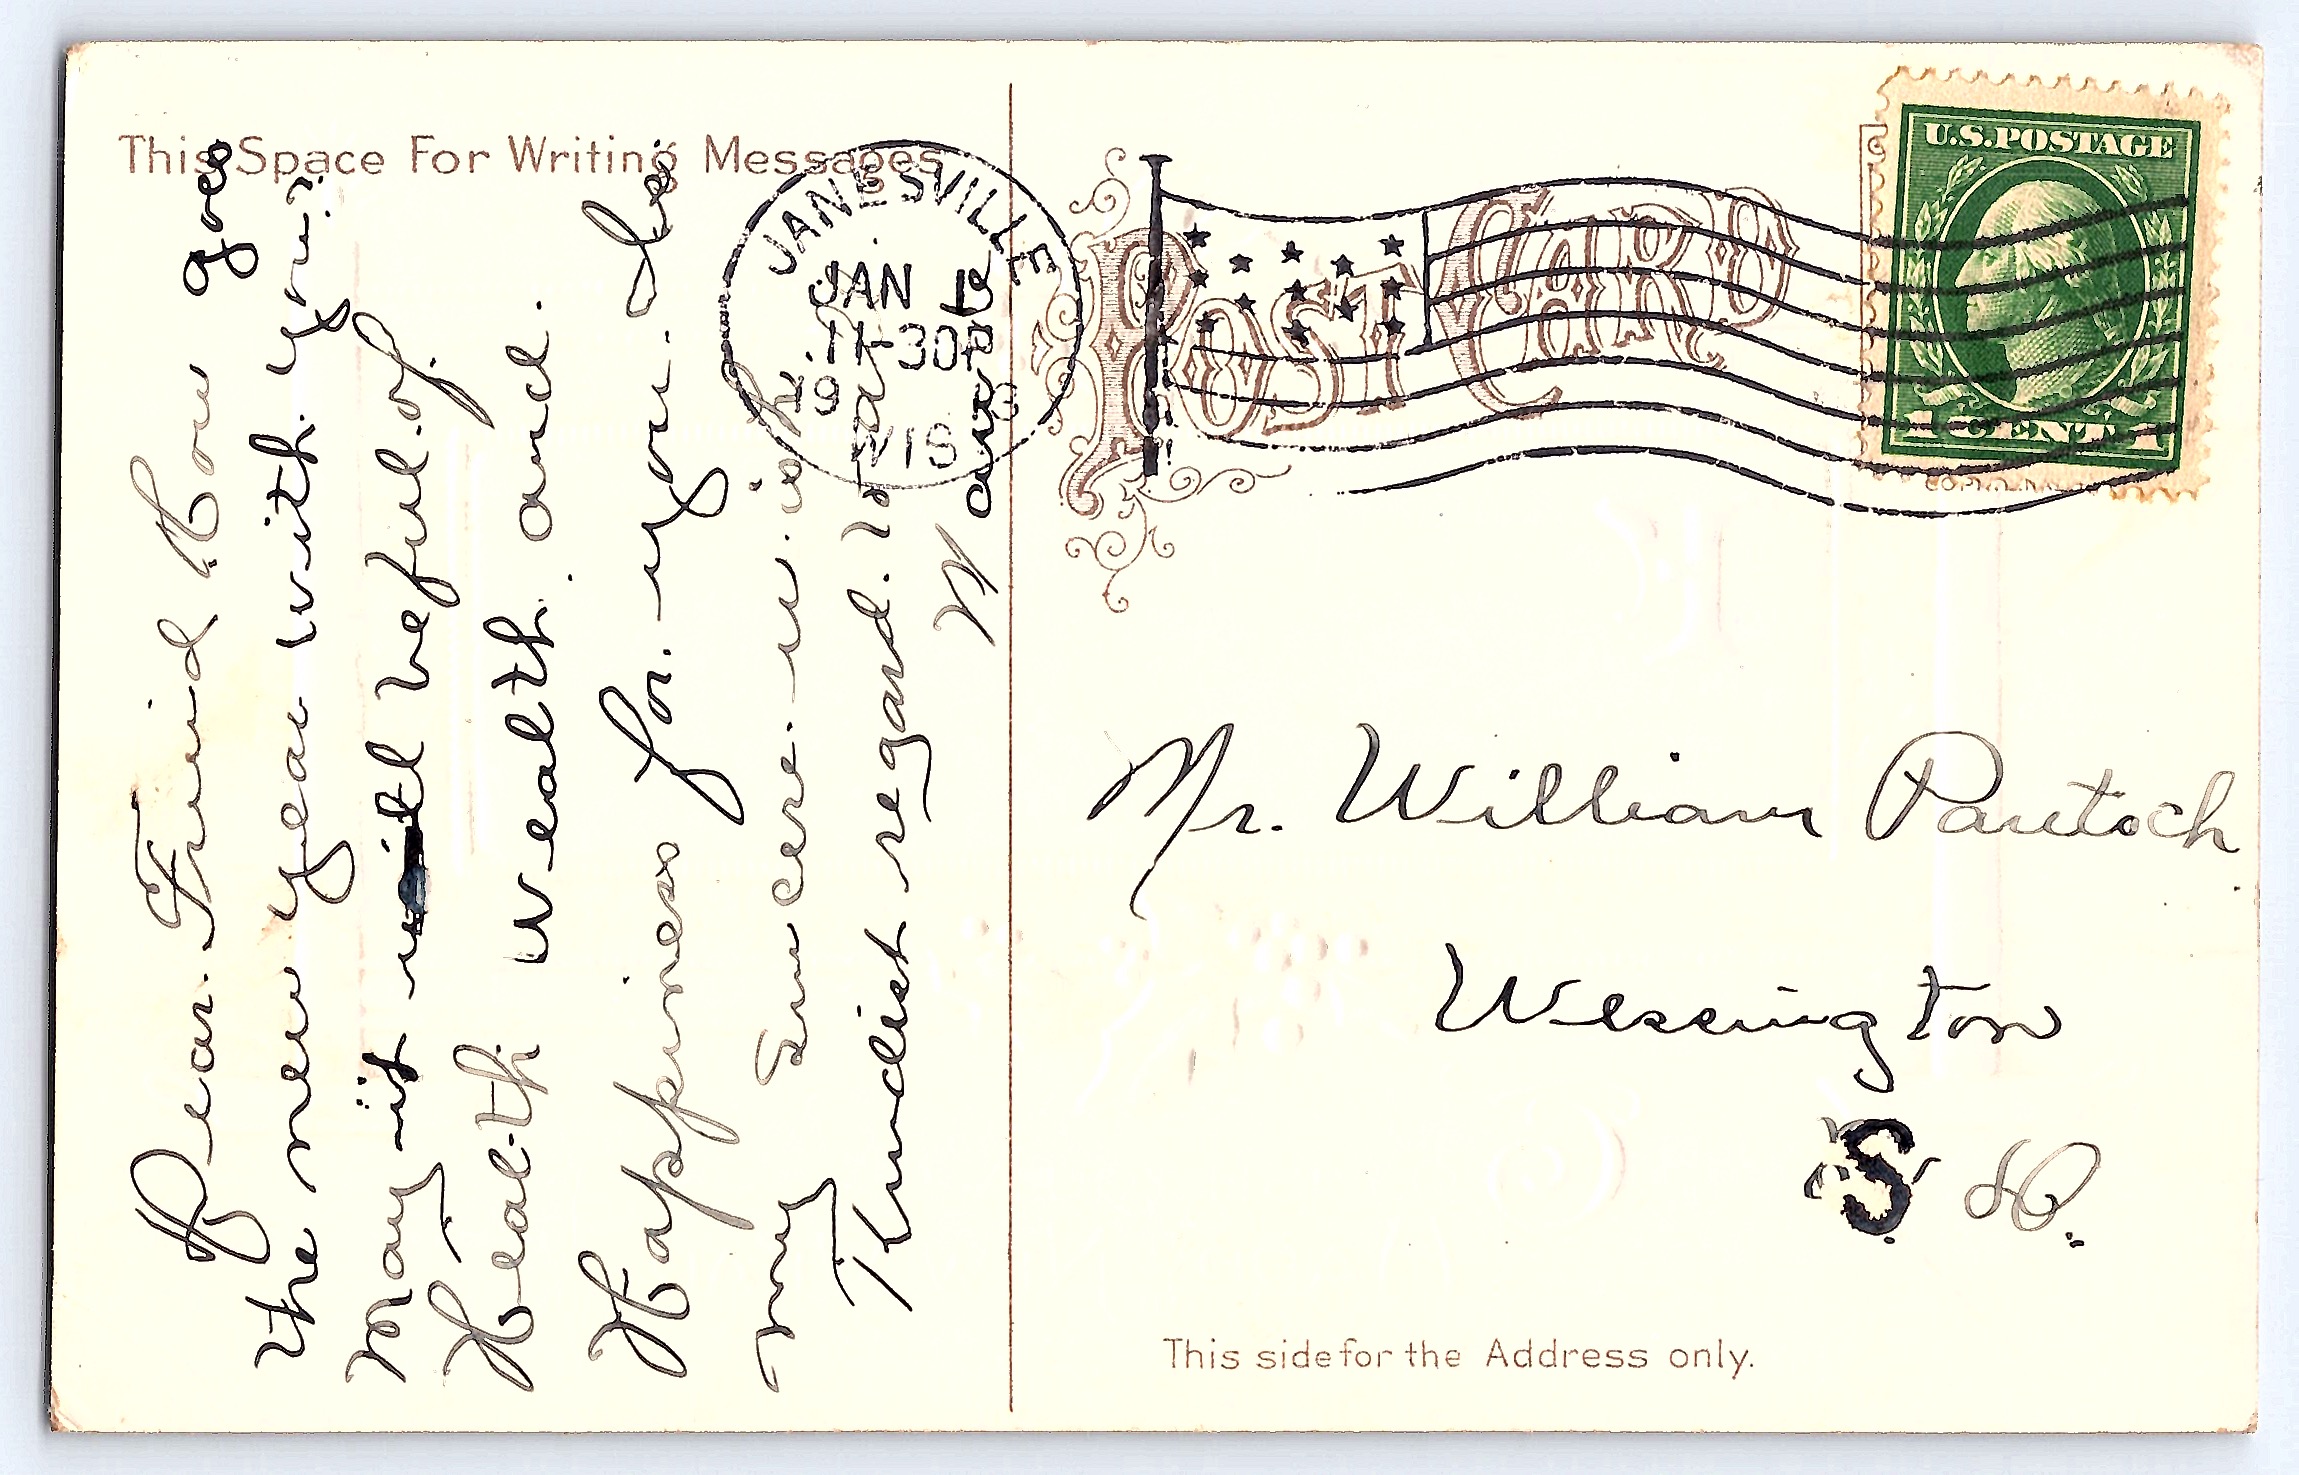 This Space For Writing Messages
Dear. Friend How goes
the new year with you?
May it will be ful. of
Health Wealth. and.
Happiness for. you. Is
my Sincere. wish.
Kindest regard. to all
W
JANESVILLE
JAN
11-30
WIS
POST CARD
U.S. POSTAGE
1 CENT 1
Mr. William Pautoch
Wessington
S. D.
This side for the Address only.